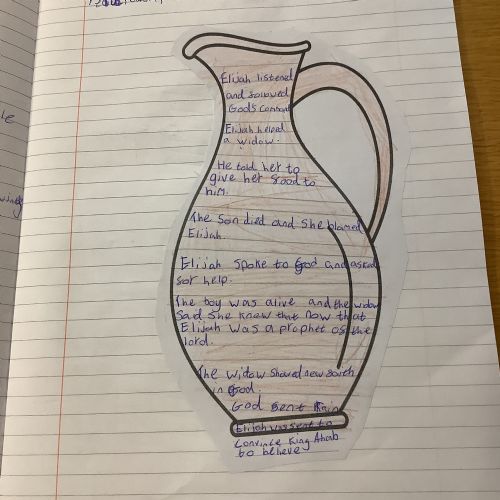 Elijah listened
and folowed
Gods comand
Elijah helped
a widow.
He told her to
give her food to
him.
The Son died and she blamed
Elijah.
Elijah spoke to God and asked
for help.
The boy was alive and the widow
Said She knew that now that
Elijah was a prophet of the
lord.
The widow showed new faith
in God.
God sent Rain
Elijah was sent to
Convince King Ahab
to believe